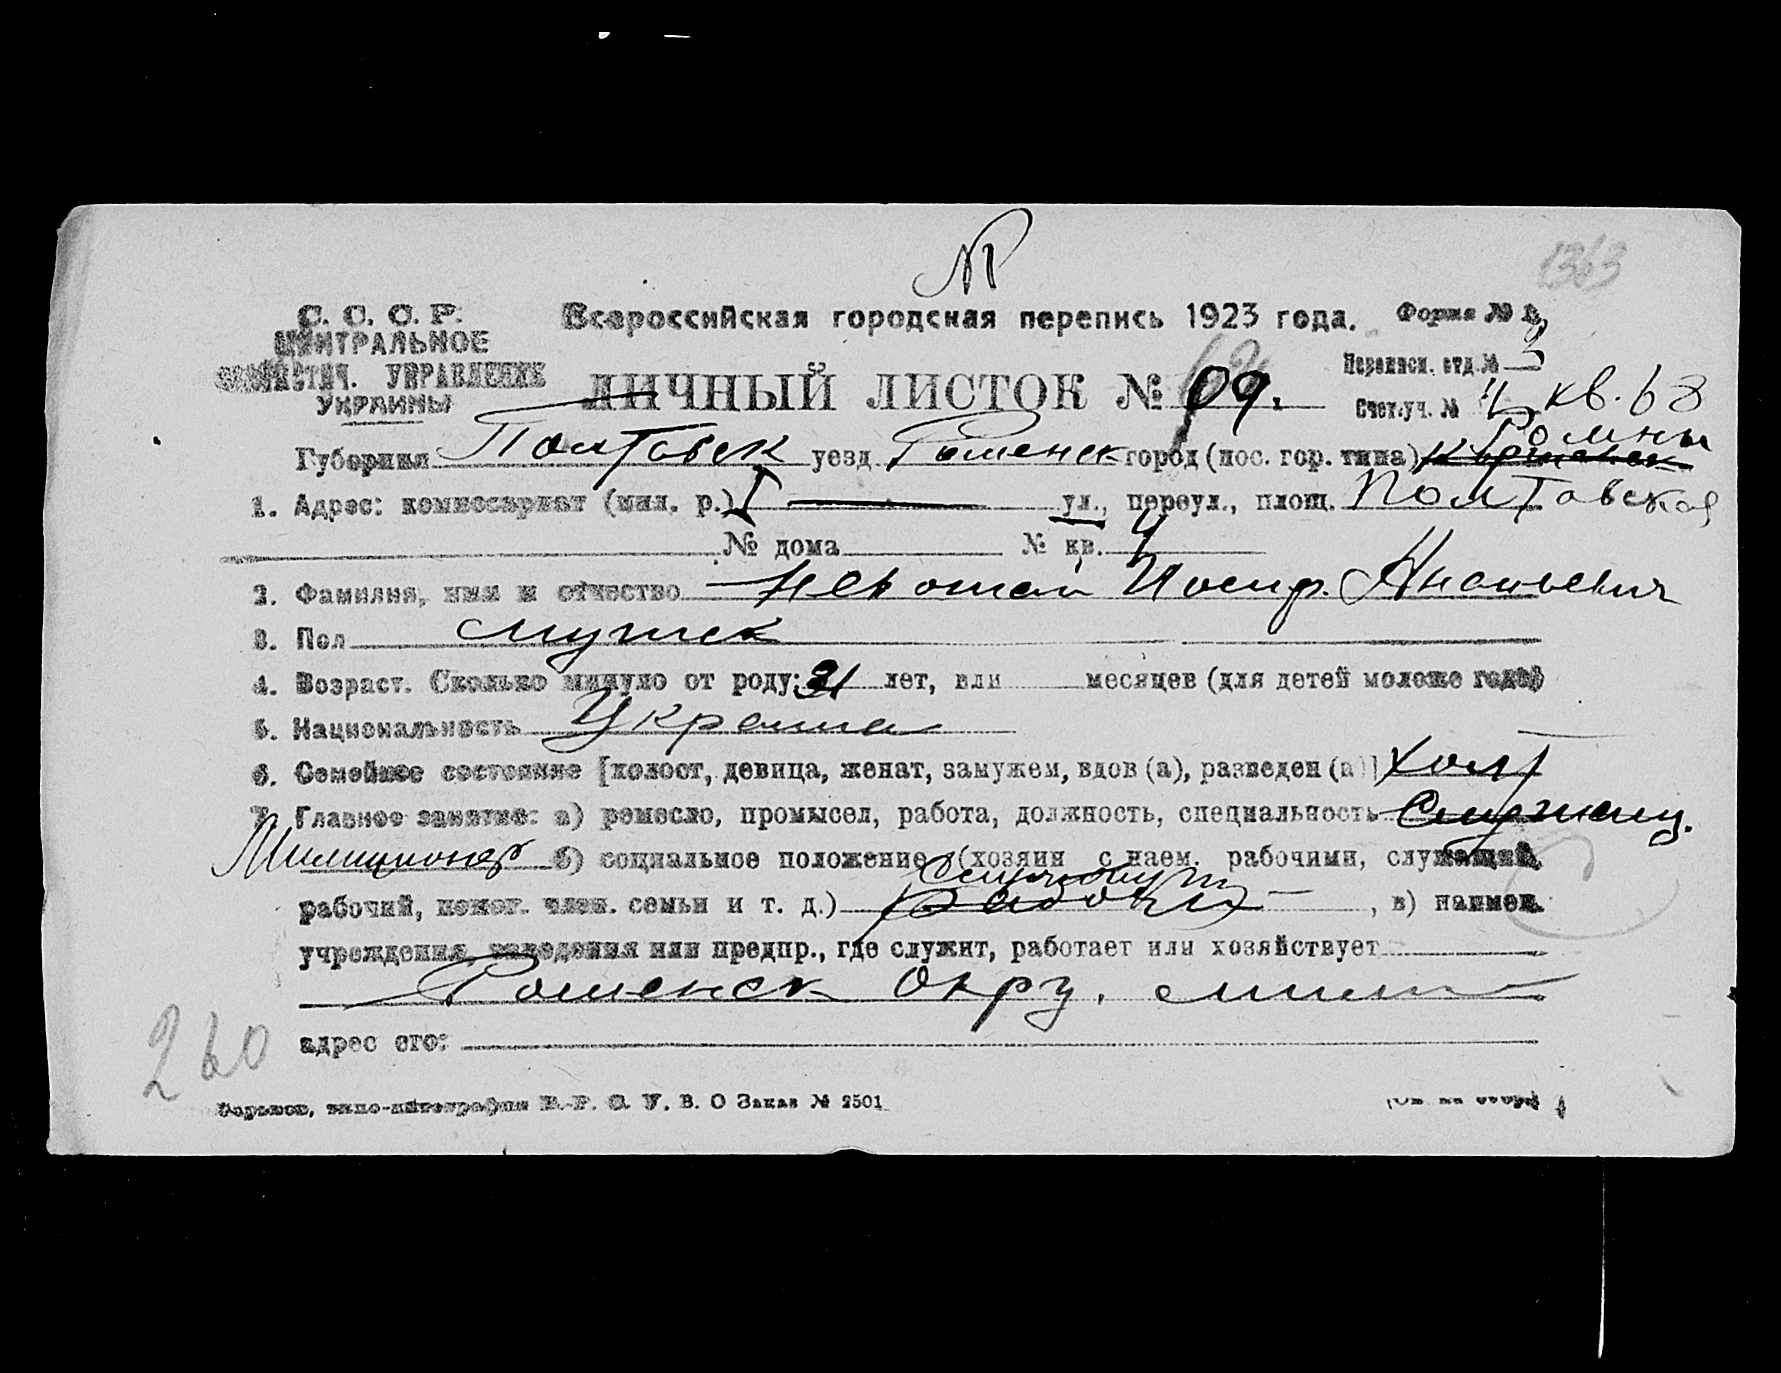 1363
С. С. С. Р.
ЦЕНТРАЛЬНОЕ
СТАТИСТИЧ. УПРАВЛЕНИЕ
УКРАИНЫ
Всероссийская городская перепись 1923 года.
Форма № 1,
ЛИЧНЫЙ ЛИСТОК № 09.
Переписн. отд. № 3
Счет. уч. № 4 кв. 68
Губерния Полтавск уезд Роменск город (пос. гор. типа) Ромны
1. Адрес: комиссариат (мил. р.) I ул., переул., площ. Полтавская
№ дома № кв. 4
2. Фамилия, имя и отчество Иосиф Ананьевич
3. Пол мужск
4. Возраст. Сколько минуло от роду: 31 лет, или месяцев (для детей моложе года)
5. Национальность Украинец
6. Семейное состояние [холост, девица, женат, замужем, вдов (а), разведен (а)] холост
7. Главное занятие: а) ремесло, промысел, работа, должность, специальность Служащ.
Милиционер б) социальное положение (хозяин с наем. рабочими, служащий,
Служащий
рабочий, помог. член. семьи и т. д.) рабочий, в) наимен.
учреждения, заведения или предпр., где служит, работает или хозяйствует
Роменск Окру. милиц
адрес его:
260
Харьков, типо-литография В. О Заказ № 2501
(См. на обор.)